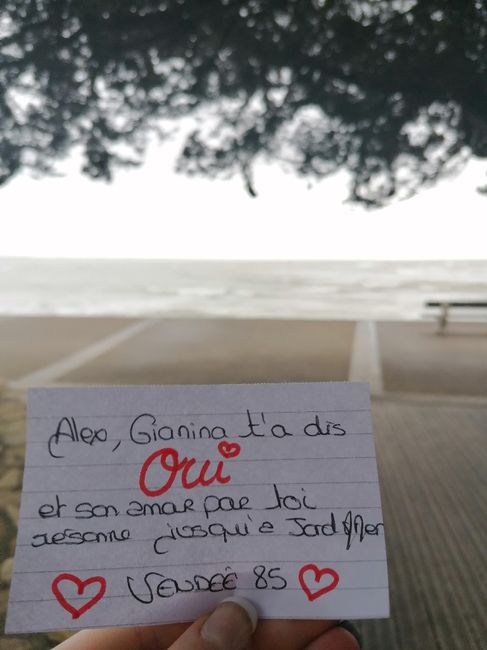 Alex, Gianina t'a dis
Oui
et son amar par toi
résonne jusqu'e Jard/Mer
VENDÉE 85